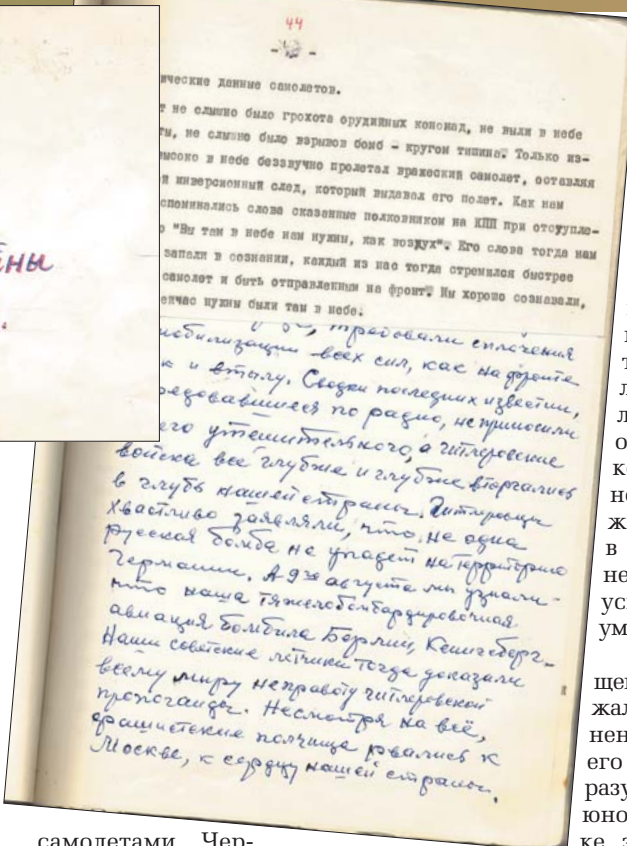 ены
.
44
ические данные самолетов.
т не слышно было грохота орудийных кононад, не выли в небе
ты, не слышно было взрывов бомб - кругом тишина. Только из-
высоко в небе беззвучно пролетал вражеский самолет, оставляя
й инверсионный след, который выдавал его полет. Как нам
споминались слова сказанные полковником на КПП при отступле-
о "Вы там в небе нам нужны, как воздух". Его слова тогда нам
запали в сознании, каждый из нас тогда стремился быстрее
самолет и быть отправленным на фронт. Мы хорошо сознавали,
ейчас нужны были там в небе.
требовали сплочения
мобилизации всех сил, как на фронте
к и втылу. Сводки последних известий,
редовавшиеся по радио, не приносили
его утешительного, а гитлеровские
войска всё глубже и глубже вторгались
в глубь нашей страны. Гитлеровцы
хвастливо заявляли, что, не одна
русская бомба не упадет на территорию
Германии. А 9го августа мы узнали-
что наша тяжелобомбардировочная
авиация бомбила Берлин, Кенигсберг-
Наши советские лётчики тогда доказали
всему миру неправоту гитлеровской
пропоганды. Несмотря на всё,
фашистские полчища рвались к
Москве, к сердцу нашей страны.
самолетами. Чер-
т
л
л
о
ко
не
ж
в
не
усп
ум
щен
жал
нен
его
разу
юно
ке з